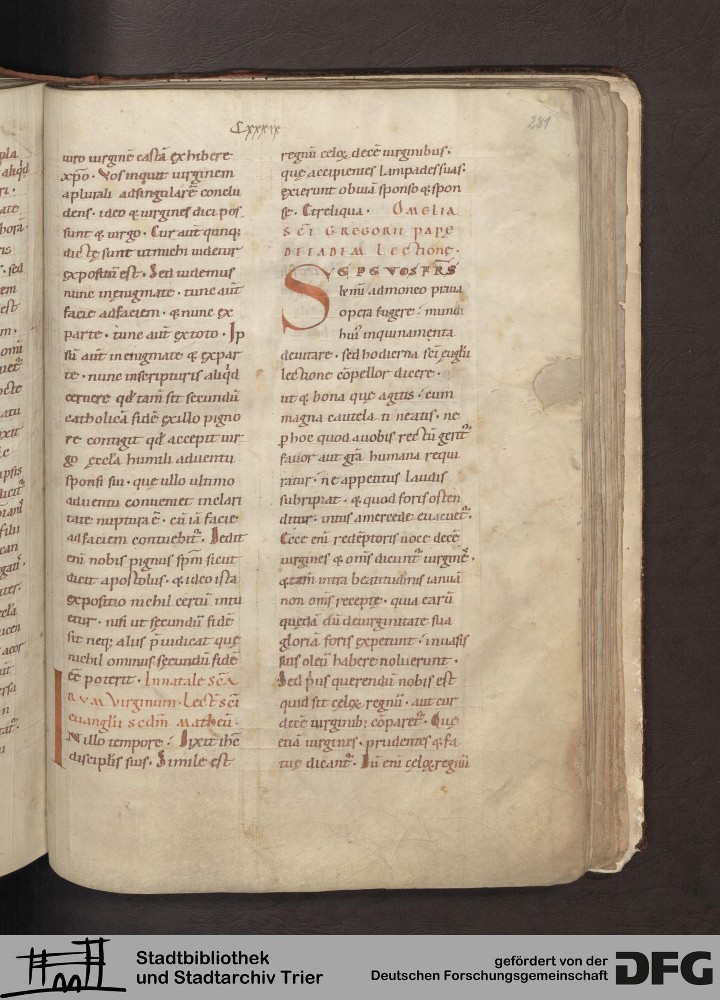 Cxxxix
281
uiro uirginē castā exhibere
xp̄o · Vos inquit uirginem
aplurali adsingularē conclu
dens · ideo & uirgines dici pos
sunt & uirgo · Cur aut̄ quinq;
dictę sunt ut michi uidetur
expositū est · Sed uidemus
nunc inenigmate · tunc aut̄
facie adfaciem · & nunc ex
parte · tunc aut̄ extoto · Ip
sū aut̄ in enigmate & expar
te · nunc inscripturis aliq̄d
cernere qd̄ tam̄ sit secundū
catholicā fidē exillo pigno
re contigit qd̄ accepit uir
go ęccl̄a humili aduentu
sponsi sui · que illo ultimo
aduentu conueniet inclari
tate nuptura ē · cū iā facie
adfaciem contuebit᷑ · Dedit
enī nobis pignus sp̄m sicut
dicit apostolus · & ideo ista
expositio nichil certū intu
etur · nisi ut secundū fidē
sit neq; alius p̄iudicat quę
nichil ominus secundū fidē
eē poterit · In natale sc̄a
rum Virginum · Lect̄ sc̄i
euanglii sc̄dm̄ Matheū ·
In illo tempore : Dixit ih̄c
disciplis suis · Simile est
regnū celoꝝ decē uirginibus ·
que accipientes lampades suas ·
exierunt obuiā sponso & spon
se · Et reliqua · Omelia
sc̄i Gregorii pape
de eadem lectione ·
Sępe uos fr̄s
k̄mī admoneo praua
opera fugere : mundi
hui᷒ inquinamenta
deuitare · sed hodierna sc̄i eugl̄ii
lectione cōpellor dicere ·
ut & bona que agitis : cum
magna cautela ti neatis · ne
p hoc quod auobis rectū gerit᷑
fauor aut gr̄a humana requi
ratur · ne appetitus laudis
subripiat · & quod foris osten
ditur · intus amercede euacuet᷑ ·
Ecce enī redēptoris uoce decē
uirgines & om̄s dicunt᷑ uirginē ·
& tam̄ intra beatitudinis ianuā
non om̄s recepte · quia earū
quędā dū deuirginitate sua
gloriā foris expetunt : inuasis
suis oleū habere noluerunt ·
Sed p̄us querendū nobis est
quid sit celoꝝ regnū · aut cur
decē uirginib; cōparet᷑ · Que
etiā uirgines · prudentes & fa
tuę dicant᷑ · Dū enī cęloꝝ regnū
Stadtbibliothek
und Stadtarchiv Trier
gefördert von der
Deutschen Forschungsgemeinschaft
DFG